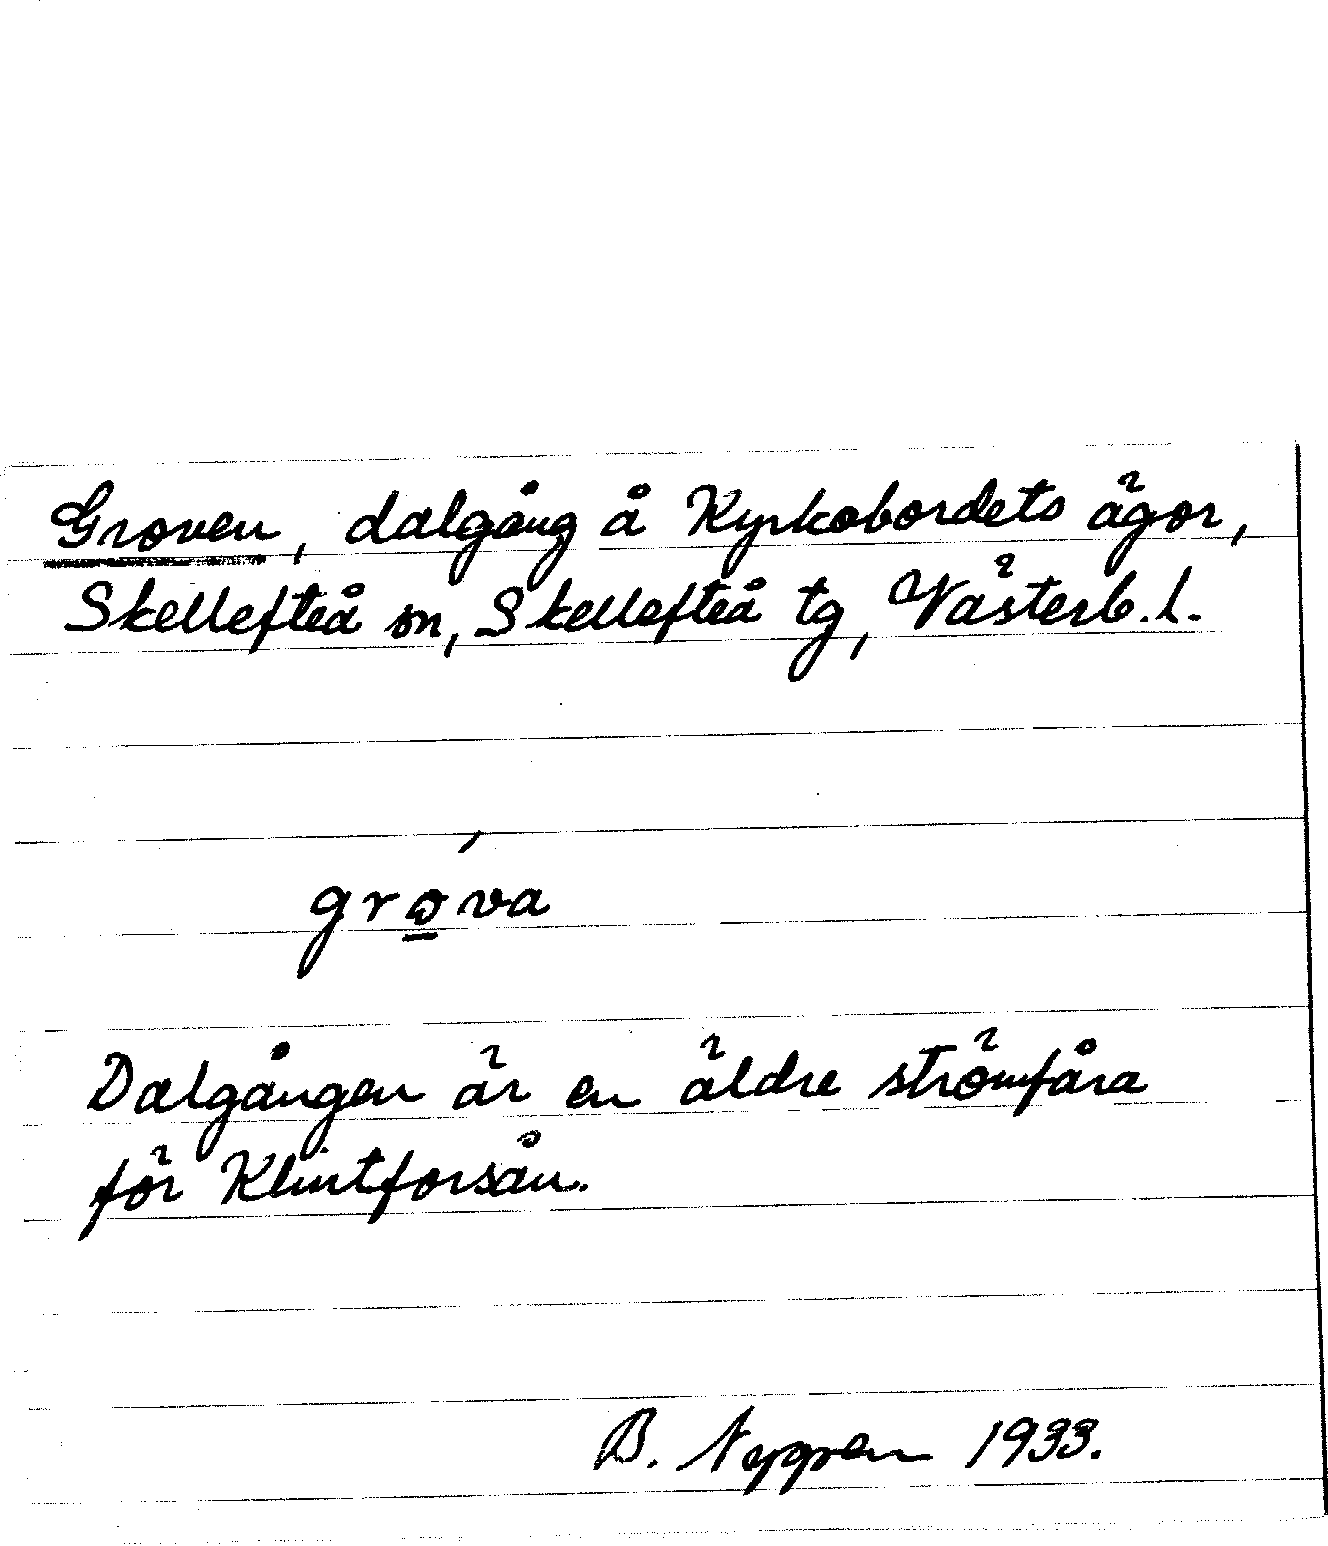 Groven, dalgång å Kyrkobordets ägor,
Skellefteå sn, Skellefteå tg, Västerb. l.
grova
Dalgången är en äldre strömfåra
för Klintforsån.
B. Nygren 1933.